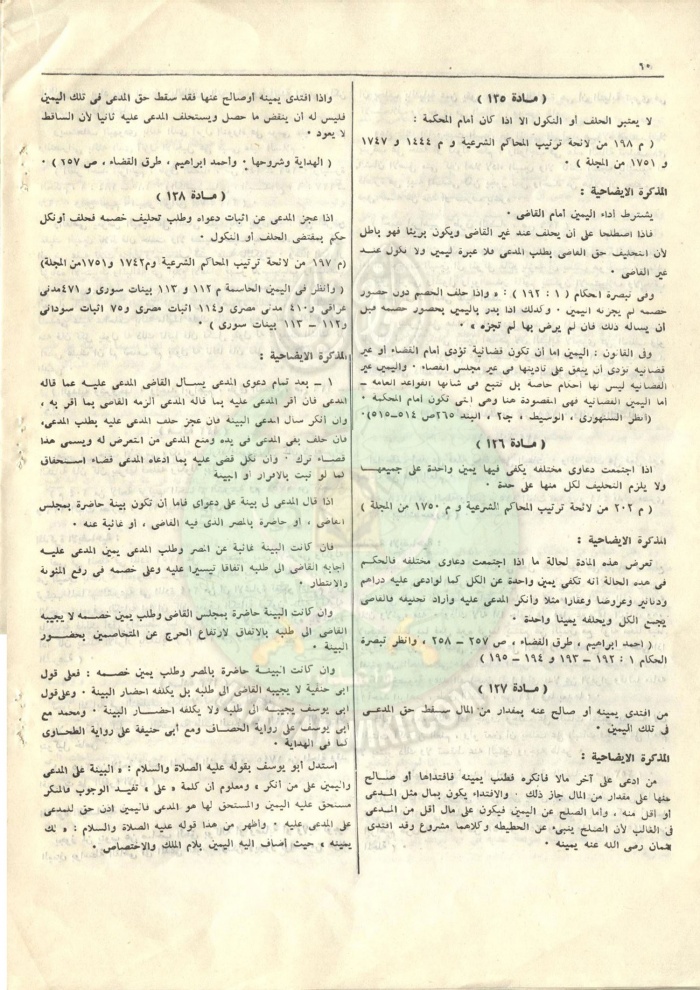 ٦٥
( مادة ١٣٥ )
لا يعتبر الحلف أو النكول الا اذا كان أمام المحكمة :
( م ١٩٨ من لائحة ترتيب المحاكم الشرعية و م ١٤٤٤ و ١٧٤٧
و ١٧٥١ من المجلة ) ·
المذكرة الايضاحية :
يشترط أداء اليمين أمام القاضى ·
فاذا اصطلحا على أن يحلف عند غير القاضى ويكون بريئا فهو باطل
لأن التحليف حق القاضى بطلب المدعى فلا عبرة ليمين ولا نكول عند
غير القاضى ·
وفى تبصرة الحكام ( ١ : ١٩٢ ) : « واذا حلف الخصم دون حضور
خصمه لم يجزئه اليمين · وكذلك اذا بدر باليمين بحضور خصمه قبل
أن يسأله ذلك فان لم يرض بها لم تجزه » ·
وفى القانون : اليمين اما أن تكون قضائية تؤدى أمام القضاء أو غير
قضائية تؤدى أن يتفق على تأديتها فى غير مجلس القضاء · واليمين غير
القضائية ليس لها أحكام خاصة بل تتبع فى شأنها القواعد العامة ــ
أما اليمين القضائية فهى المقصودة هنا وهى التى تكون أمام المحكمة ·
(أنظر السنهورى ، الوسيط ، جـ٢ ، البند ٢٦٥ ص ٥١٤ــ٥١٥)·
( مادة ١٣٦ )
اذا اجتمعت دعاوى مختلفه يكفى فيها يمين واحدة على جميعها
ولا يلزم التحليف لكل منها على حدة ·
( م ٢٠٢ من لائحة ترتيب المحاكم الشرعية و م ١٧٥٠ من المجلة )
المذكرة الايضاحية :
تعرض هذه المادة لحالة ما اذا اجتمعت دعاوى مختلفه فالحكم
فى هذه الحالة أنه تكفى يمين واحدة عن الكل كما لو ادعى عليه دراهم
ودنانير وعروضا وعقارا مثلا وأنكر المدعى عليه وأراد تحليفه فالقاضى
يجمع الكل ويحلفه يمينا واحدة ·
( احمد ابراهيم ، طرق القضاء ، ص ٢٥٧ ــ ٢٥٨ ، وانظر تبصرة
الحكام ١ : ١٩٢ ــ ١٩٣ و ١٩٤ ــ ١٩٥ )
( مادة ١٣٧ )
من افتدى يمينه أو صالح عنه بمقدار من المال سقط حق المدعى
فى تلك اليمين ·
المذكرة الايضاحية :
من ادعى على آخر مالا فأنكره فطلب يمينه فافتداها أو صالح
عنها على مقدار من المال جاز ذلك · والافتداء يكون بمال مثل المدعى
أو أقل منه ، وأما الصلح عن اليمين فيكون على مال أقل من المدعى
فى الغالب لأن الصلح ينبىء عن الحطيطه وكلاهما مشروع وقد افتدى
عثمان رضى الله عنه يمينه ·
واذا افتدى يمينه أو صالح عنها فقد سقط حق المدعى فى تلك اليمين
فليس له أن ينقض ما حصل ويستحلف المدعى عليه ثانيا لأن الساقط
لا يعود ·
( الهداية وشروحها · وأحمد ابراهيم ، طرق القضاء ، ص ٢٥٧ ) ·
( مادة ١٣٨ )
اذا عجز المدعى عن اثبات دعواه وطلب تحليف خصمه فحلف أو نكل
حكم بمقتضى الحلف أو النكول ·
(م ١٩٧ من لائحة ترتيب المحاكم الشرعية وم ١٧٤٢ و١٧٥١من المجلة)
( وأنظر فى اليمين الحاسمة م ١١٢ و ١١٣ بينات سورى و ٤٧١مدنى
عراقى و٤١٠ مدنى مصرى و١١٤ اثبات مصرى و٧٥ اثبات سودانى
و١١٢ ــ ١١٣ بينات سورى ) ·
المذكرة الايضاحية :
١ ــ بعد تمام دعوى المدعى يسأل القاضى المدعى عليه عما قاله
المدعى فان أقر المدعى عليه بما قاله المدعى ألزمه القاضى بما أقر به ،
وان أنكر سأل المدعى البينة فان عجز حلف المدعى عليه بطلب المدعى،
فان حلف بقى المدعى فى يده ومنع المدعى من التعرض له ويسمى هذا
قضاء ترك · وان نكل قضى عليه بما ادعاه المدعى قضاء استحقاق
كما لو ثبت بالاقرار أو البينة
اذا قال المدعى لى بينة على دعواى فاما أن تكون بينة حاضرة بمجلس
القاضى ، أو حاضرة بالمصر الذى فيه القاضى ، أو غائبة عنه ·
فان كانت البينة غائبة عن المصر وطلب المدعى يمين المدعى عليه
أجابه القاضى الى طلبه اتفاقا تيسيرا عليه وعلى خصمه فى رفع المئونة
والانتظار ·
وان كانت البينة حاضرة بمجلس القاضى وطلب يمين خصمه لا يجيبه
القاضى الى طلبه بالاتفاق لارتفاع الحرج عن المتخاصمين بحضور
البينة ·
وان كانت البينة حاضرة بالمصر وطلب يمين خصمه : فعلى قول
أبى حنفية لا يجيبه القاضى الى طلبه بل يكلفه احضار البينة · وعلى قول
ابى يوسف يجيبه الى طلبه ولا يكلفه احضار البينة · ومحمد مع
أبى يوسف على رواية الخصاف ومع أبى حنيفة على رواية الطحاوى
كما فى الهداية ·
استدل أبو يوسف بقوله عليه الصلاة والسلام : « البينة على المدعى
واليمين على من أنكر » ومعلوم أن كلمة « على » تفيد الوجوب فالمنكر
مستحق عليه اليمين والمستحق لها هو المدعى فاليمين اذن حق للمدعى
على المدعى عليه · وأظهر من هذا قوله عليه الصلاة والسلام : « لك
يمينه » حيث أضاف اليه اليمين بلام الملك والاختصاص ·